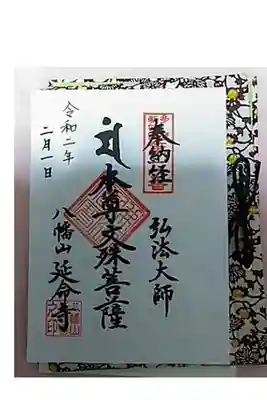 奉納経
弘法大師
本尊文殊菩薩
八幡山 延命寺
令和二年
二月一日